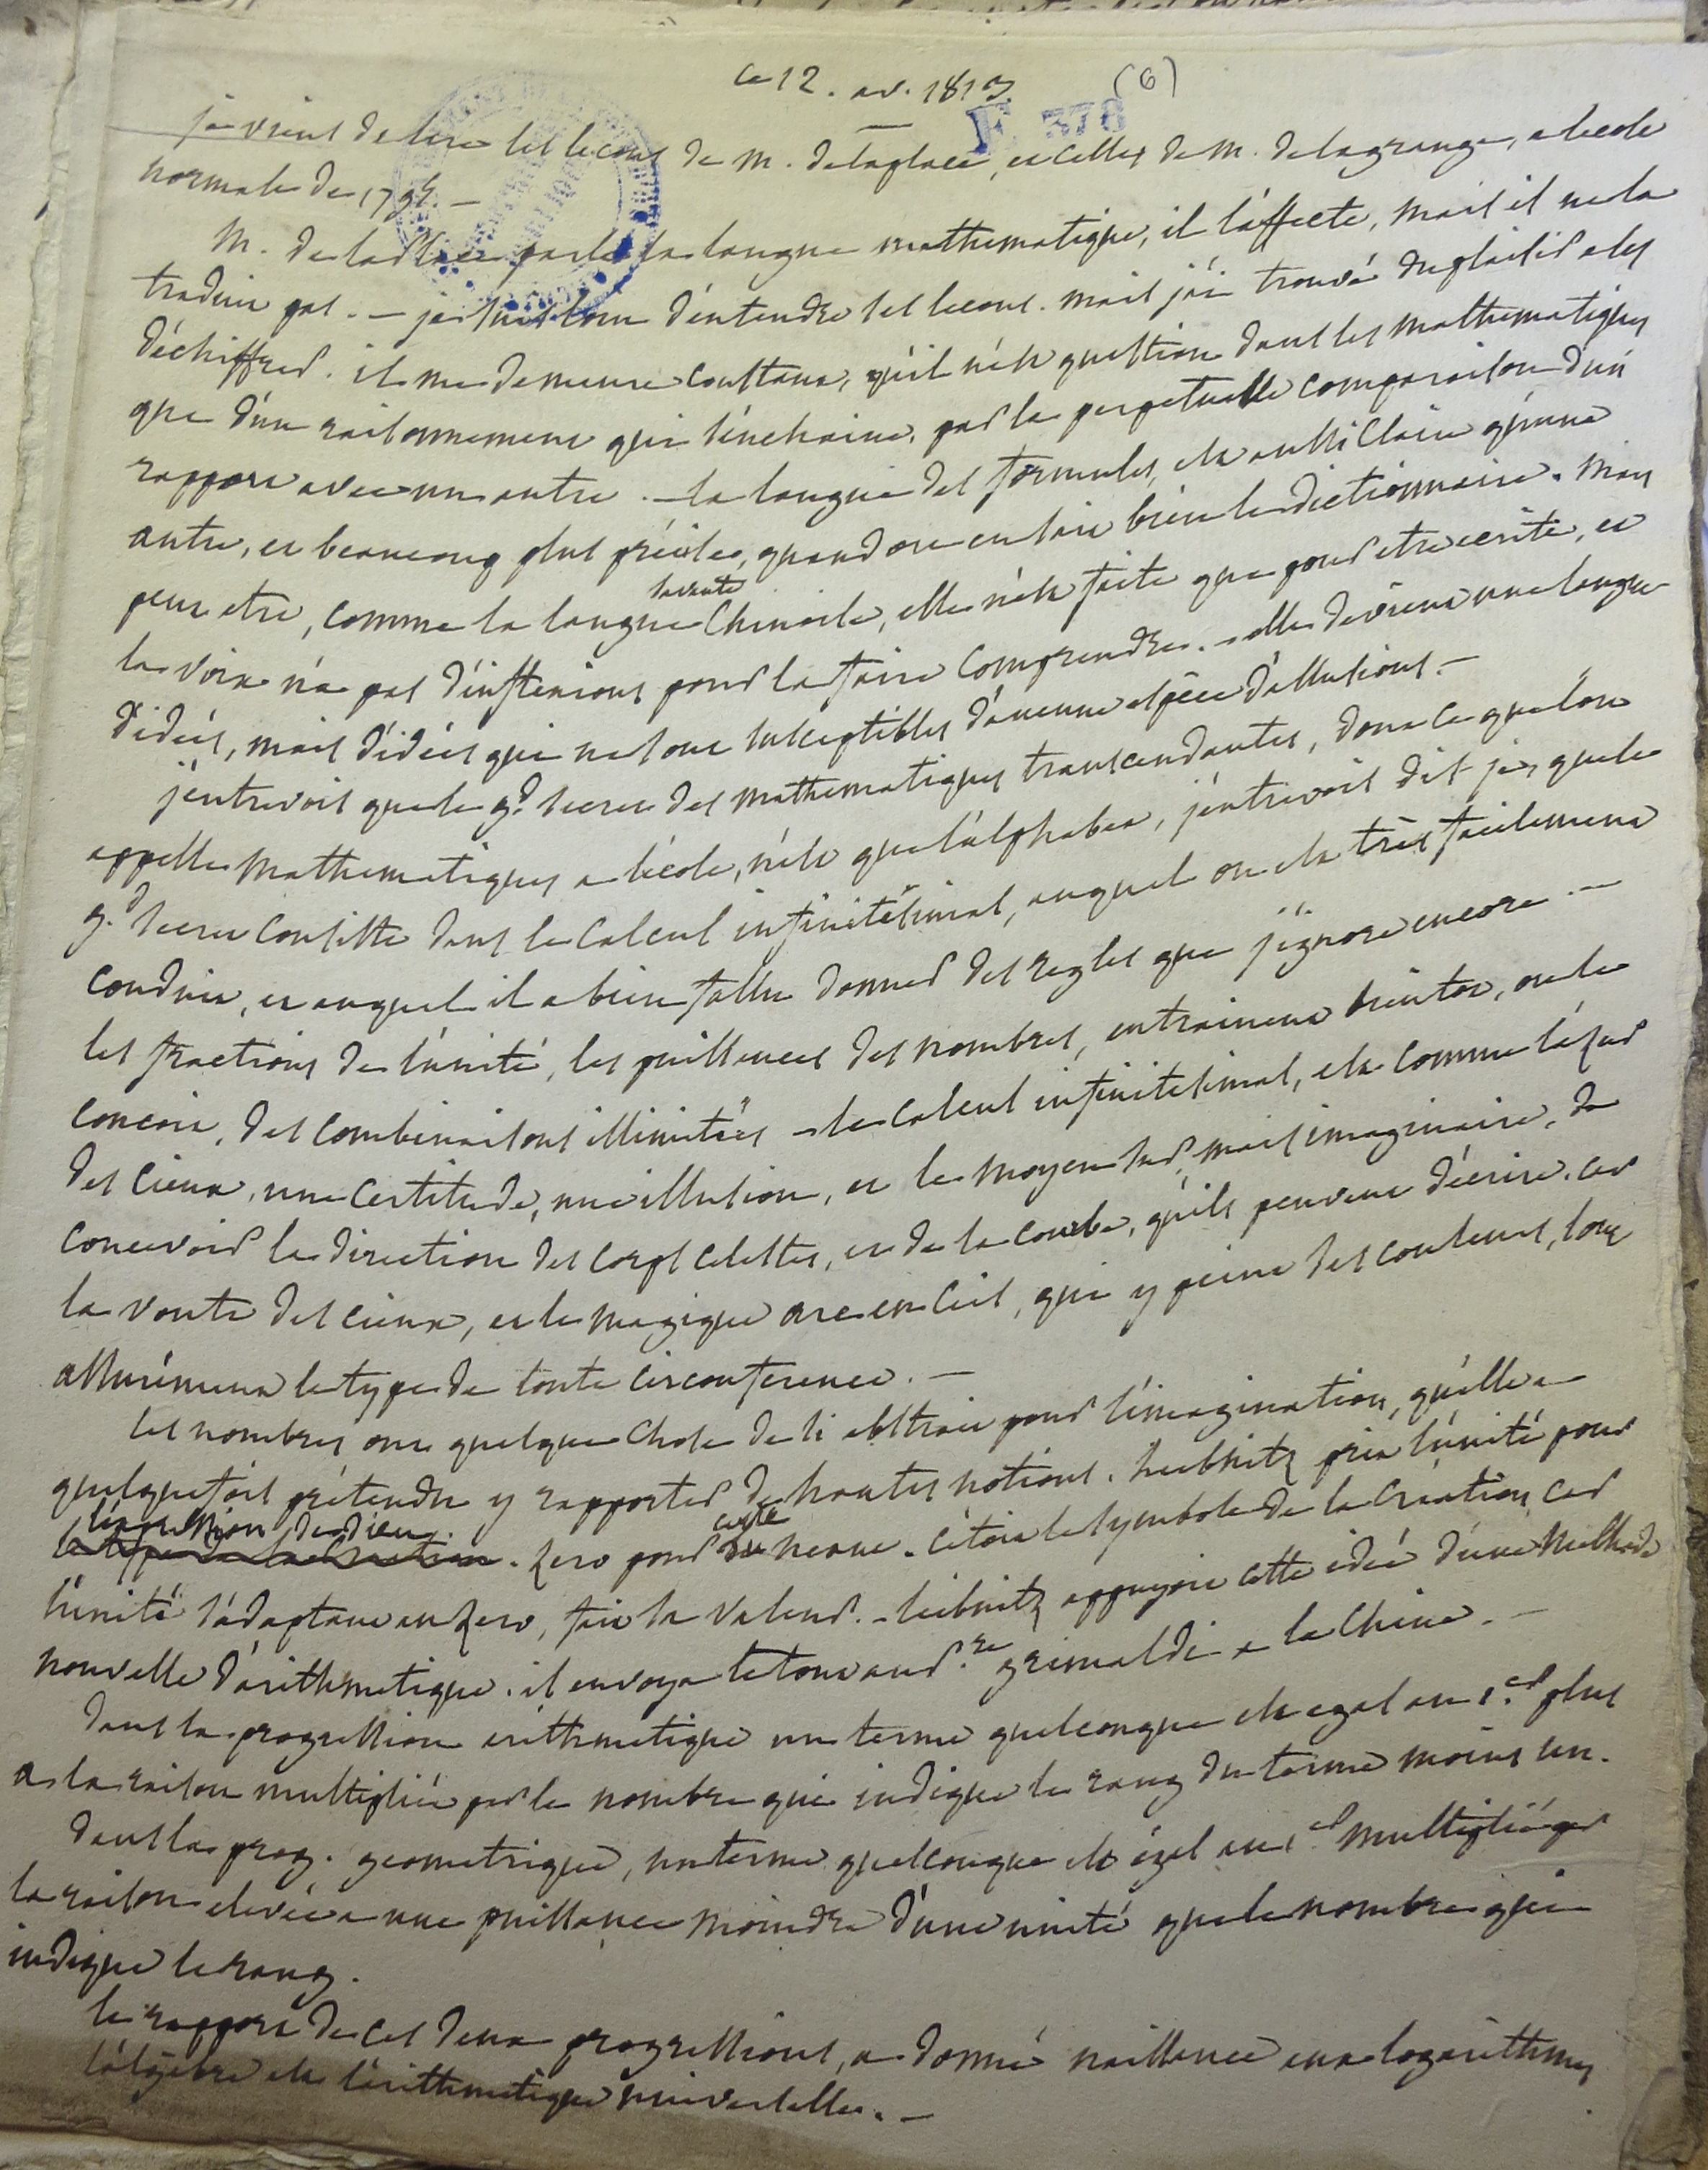 ce 12. av. 1813. (6)
F 378
je viens de lire les lecons de M. de laplace, et celles de M. de lagrange, a lecole
normale de 1795. —
M. de la place parle la langue mathematique, il l'affecte, mais il ne la
traduit pas. — je suis loin d'entendre ses lecons. mais j'ai trouvé du plaisir a les
déchiffrer. il me demeure constant, qu'il n'est question dans les mathematiques
que d'un raisonnement qui s'enchaine, par la perpetuelle comparaison d'un
rapport avec un autre. — la langue des formules, est aussi claire qu'une
autre, et beaucoup plus précise, quand on en sait bien le dictionnaire. mais
peut etre, comme la langue savante Chinoise, elle n'est faite que pour etre ecrite, et
la voix n'a pas d'inflexions pour la faire comprendre. — elle devient une langue
d'idées, mais d'idées qui ne sont susceptibles d'aucune espèce d'allusions. —
j'entrevois que le gd. secret des mathematiques transcendantes, dont ce que l'on
appelle mathematiques a l'école, n'est que l'alphabet, j'entrevois dis-je, que le
gd. secret consiste dans le calcul infinitésimal, auquel on est très facilement
conduit, et auquel il a bien fallu donner des regles que j'ignore encore. —
les fractions de l'unité, les puissances des nombres, entrainent bientot, on le
concoit, des combinaisons illimitées — le calcul infinitesimal, est comme l'azur
des cieux, une certitude, une illusion, et le moyen sur, mais imaginaire, de
concevoir la direction des corps celestes, et de la courbe, qu'ils peuvent décrire. car
la voute des cieux, et le magique arc en ciel, qui y peint des couleurs, sont
assurément le type de toute circonference. —
les nombres ont quelque chose de si abstrait pour l'imagination, qu'elle a
quelquefois prétendu y rapporter de hautes notions. Leibnitz prit l'unité pour
l'expression de dieu. zero pour le neant. c'étoit le symbole de la creation, car
l'unité s'adaptant au zero, fait sa valeur. — leibnitz appuyoit cette idée d'une methode
nouvelle d'arithmetique. il envoya le tout au p. re grimaldi a la Chine. —
dans la progression arithmetique un terme quelconque est egal au 1.er plus
a la raison multipliée par le nombre qui indique le rang du terme moins un.
dans la prog. geometrique, un terme quelconque est égal au 1er multiplié par
la raison elevée a une puissance moindre d'une unité que le nombre qui
indique le rang.
le rapport de ces deux progressions, a donné naissance aux logarithmes
l'algèbre est l'arithmetique universelle. —